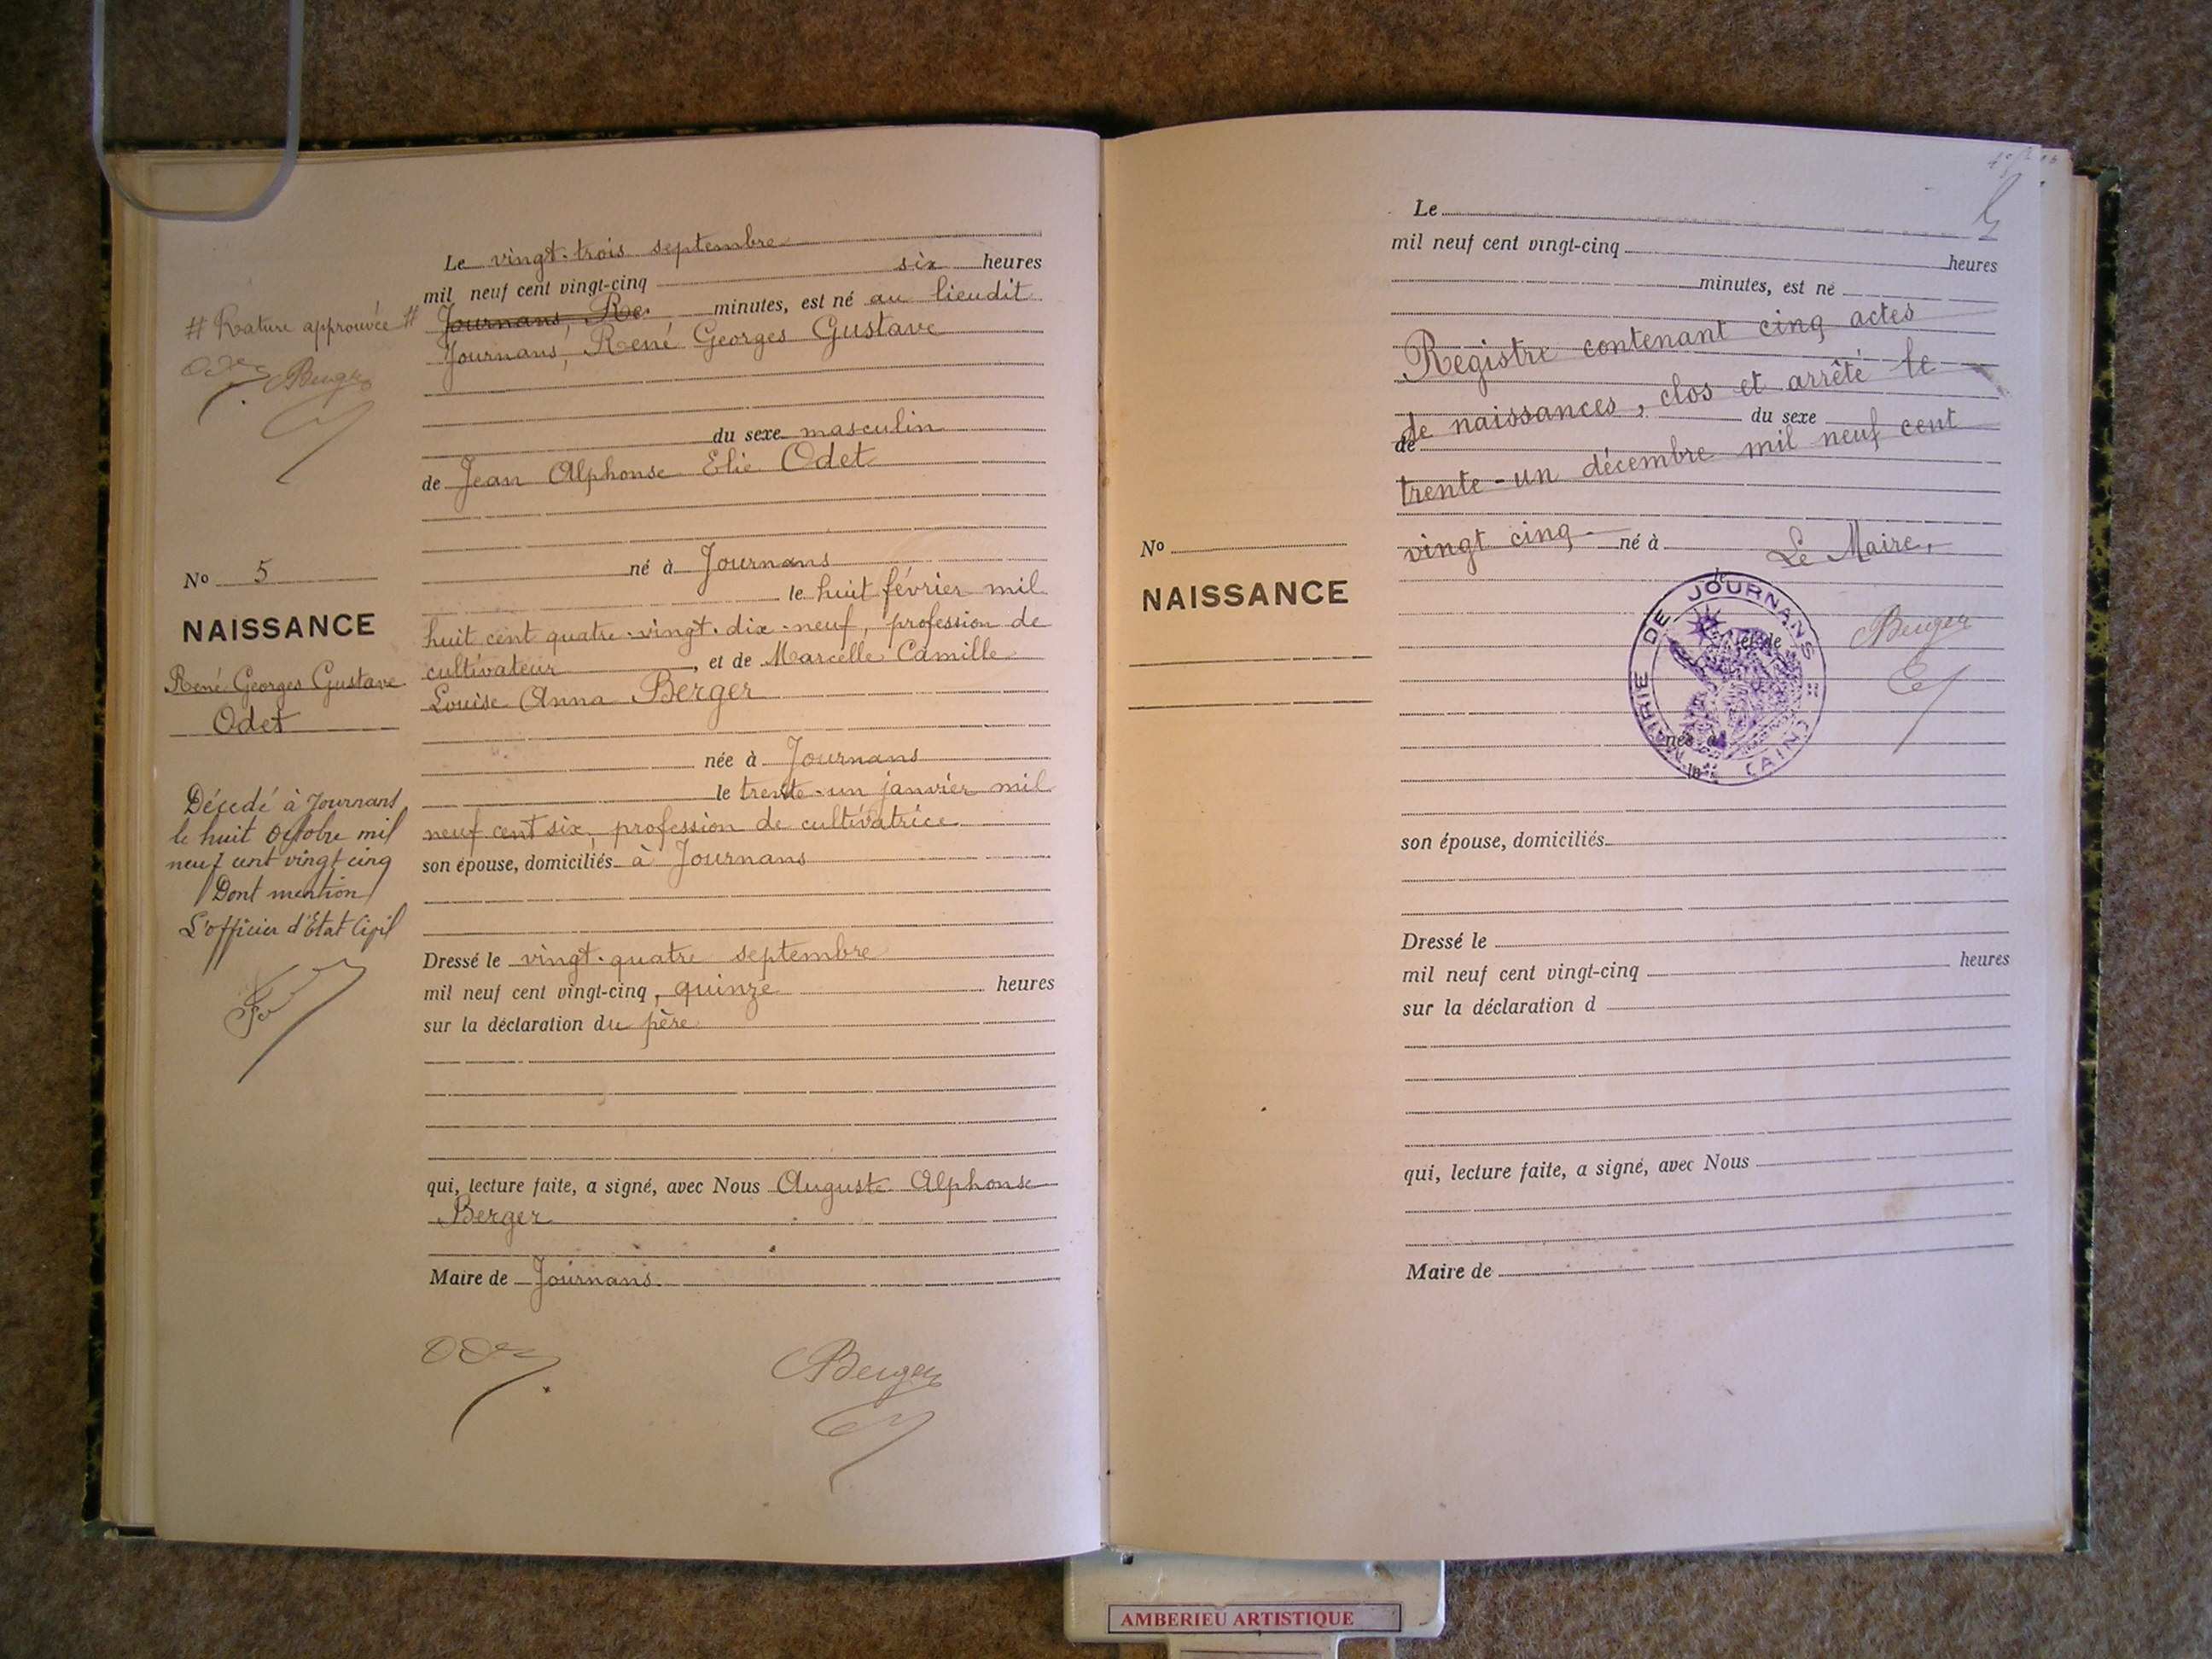 Le vingt-trois septembre
mil neuf cent vingt-cinq six heures
# Rature approuvée # Journans, Re minutes, est né au lieudit
Journans, René Georges Gustave
Berger
du sexe masculin
de Jean Alphonse Elie Odet
né à Journans
le huit février mil
huit cent quatre-vingt-dix-neuf, profession de
cultivateur, et de Marcelle Camille
Louise Anna Berger
née à Journans
le trente-un janvier mil
neuf cent six, profession de cultivatrice
son épouse, domiciliés à Journans
Dressé le vingt-quatre septembre
mil neuf cent vingt-cinq, quinze heures
sur la déclaration du père
qui, lecture faite, a signé, avec Nous Auguste Alphonse
Berger
Maire de Journans
Berger
No 5
NAISSANCE
René Georges Gustave
Odet
Décedé à Journans
le huit octobre mil
neuf cent vingt cinq
Dont mention
L'officier d'Etat Civil
Le
mil neuf cent vingt-cinq
heures
minutes, est né
Registre contenant cinq actes
de naissances, clos et arrêté le
du sexe
de
trente-un décembre mil neuf cent
vingt cinq né à Le Maire,
le
MAIRIE DE JOURNANS
(AIN)
et de
née à
le
Berger
No
NAISSANCE
son épouse, domiciliés
Dressé le
mil neuf cent vingt-cinq heures
sur la déclaration d
qui, lecture faite, a signé, avec Nous
Maire de
AMBERIEU ARTISTIQUE